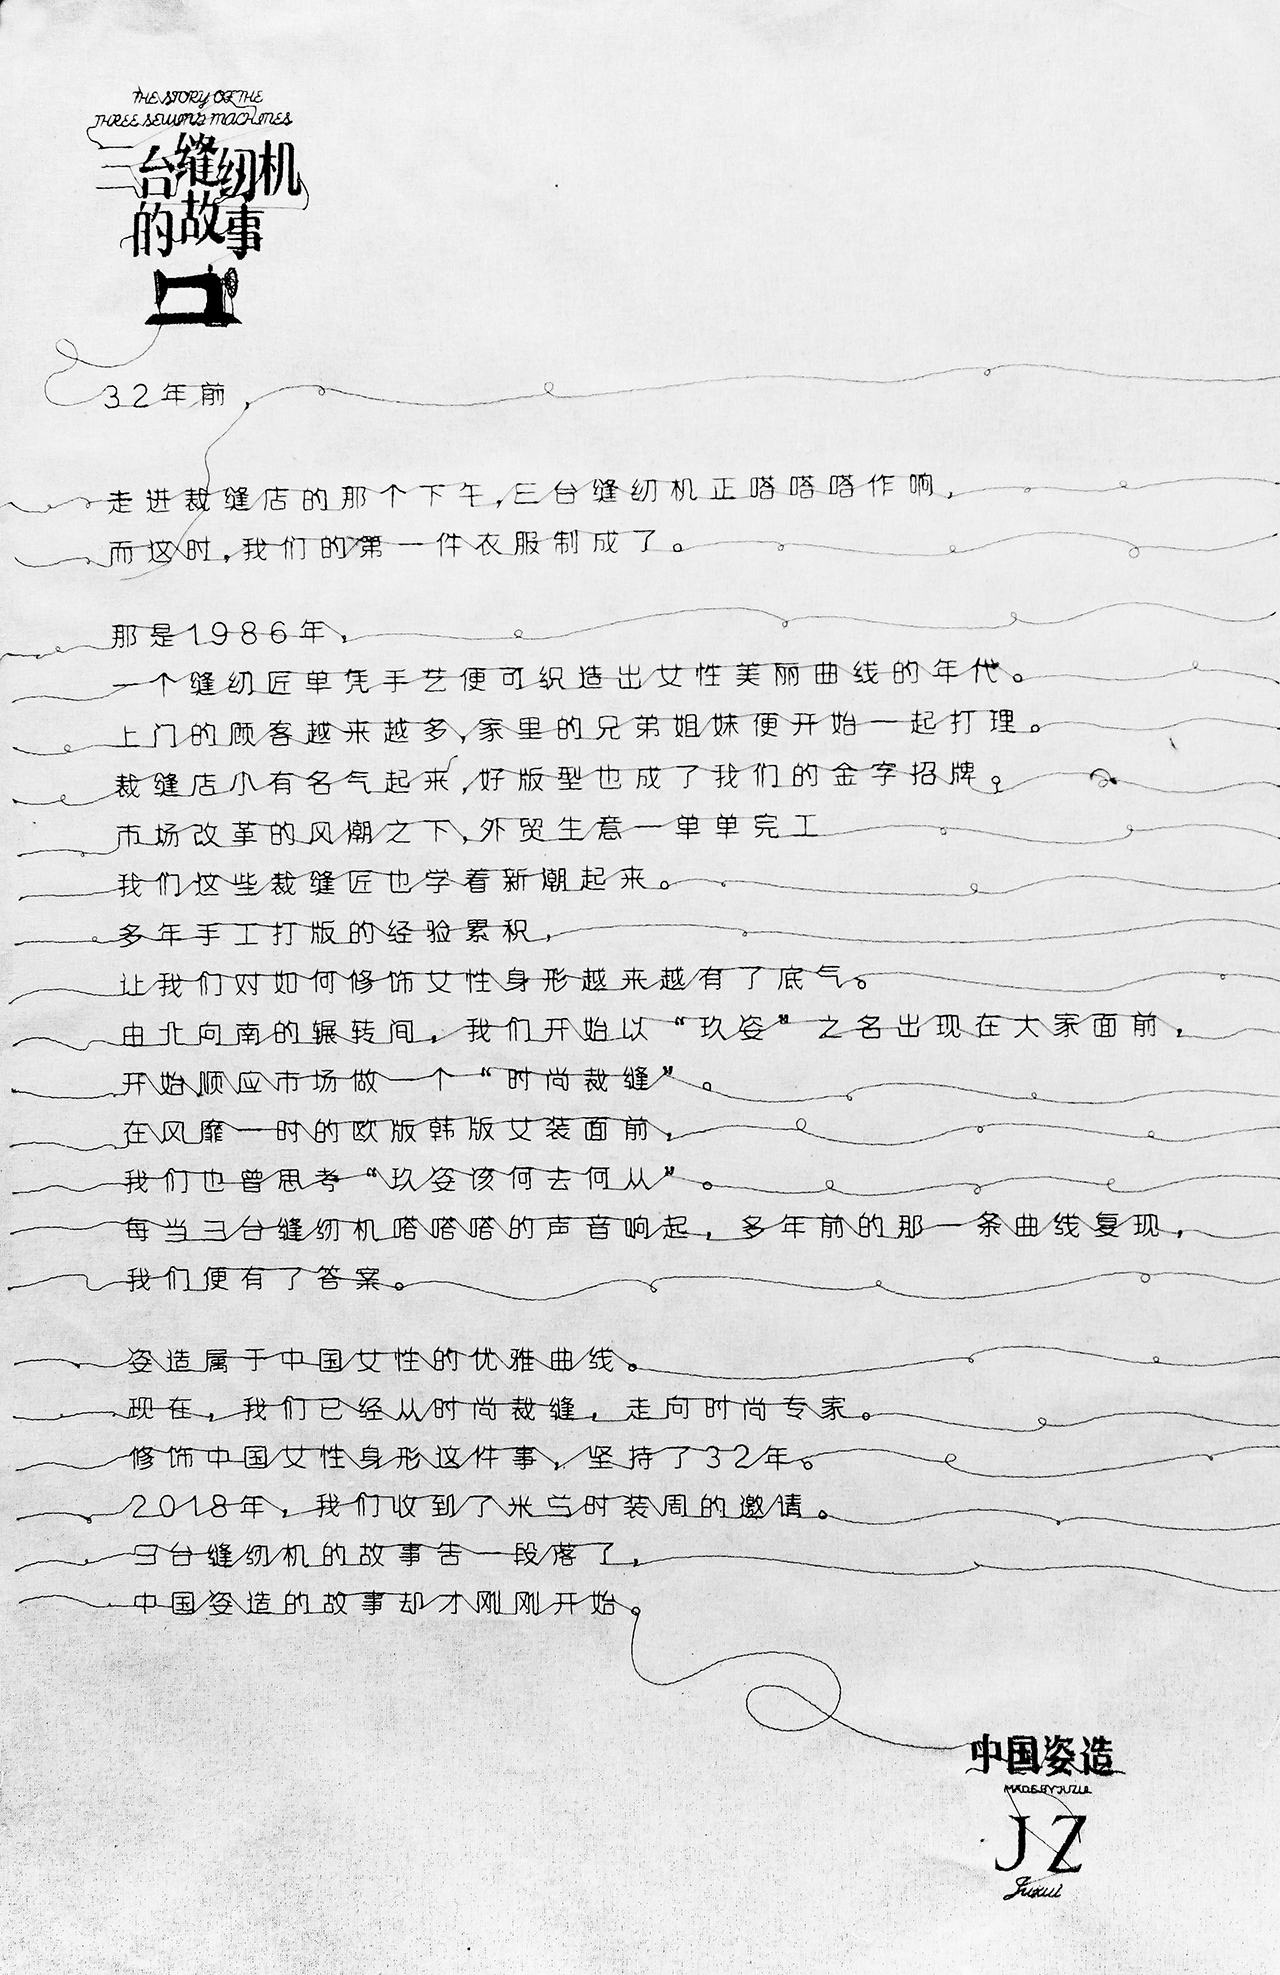 THE STORY OF THE
THREE SEWING MACHINES
三台缝纫机
的故事
32年前，
走进裁缝店的那个下午，三台缝纫机正嗒嗒嗒作响，
而这时，我们的第一件衣服制成了。
那是1986年，
一个缝纫匠单凭手艺便可织造出女性美丽曲线的年代。
上门的顾客越来越多，家里的兄弟姐妹便开始一起打理。
裁缝店小有名气起来，好版型也成了我们的金字招牌。
市场改革的风潮之下，外贸生意一单单完工
我们这些裁缝匠也学着新潮起来。
多年手工打版的经验累积，
让我们对如何修饰女性身形越来越有了底气。
由北向南的辗转间，我们开始以“玖姿”之名出现在大家面前，
开始顺应市场做一个“时尚裁缝”。
在风靡一时的欧版韩版女装面前，
我们也曾思考“玖姿该何去何从”。
每当三台缝纫机嗒嗒嗒的声音响起，多年前的那一条曲线复现，
我们便有了答案。
姿造属于中国女性的优雅曲线。
现在，我们已经从时尚裁缝，走向时尚专家。
修饰中国女性身形这件事，坚持了32年。
2018年，我们收到了米兰时装周的邀请。
三台缝纫机的故事告一段落了，
中国姿造的故事却才刚刚开始。
中国姿造
MADE BY JUZUI
JZ
Juzui